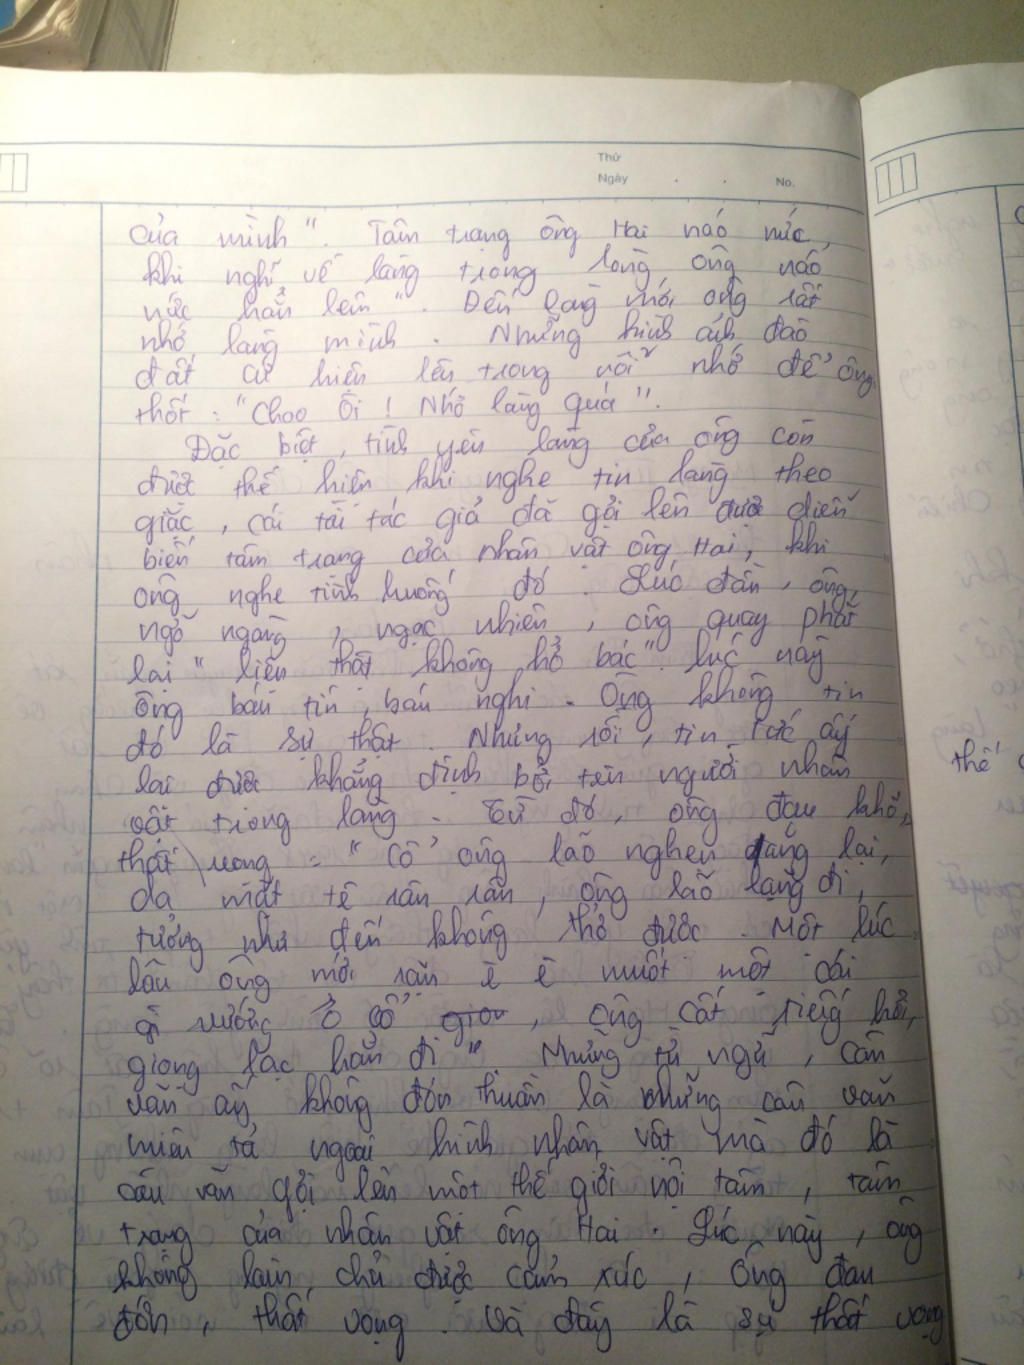 Thứ
Ngày
No.
của mình". Tâm trạng ông Hai náo nức,
khi nghĩ về làng trong lòng ông náo
nức hẳn lên". Đến làng mới ông rất
nhớ làng mình. Những hình ảnh đào
đất cứ hiện lên trong nỗi nhớ để ông
thốt: "Chao ôi! Nhớ làng quá".
Đặc biệt, tình yêu làng của ông còn
được thể hiện khi nghe tin làng theo
giặc, cái tài tác giả đã gợi lên được diễn
biến tâm trạng của nhân vật ông Hai, khi
ông nghe tình huống đó. Lúc đầu, ông,
ngỡ ngàng, ngạc nhiên, ông quay phắt
lại "liệu thật không hở bác". Lúc này
ông bán tín, bán nghi. Ông không tin
đó là sự thật. Nhưng rồi, tin tức ấy
lại được khẳng định bởi tên người nhân
vật trong làng. Từ đó, ông đau khổ,
thất vọng: "Cổ ông lão nghẹn đắng lại,
da mặt tê rân rân, ông lão lặng đi,
tưởng như đến không thở được. Một lúc
lâu ông mới rặn è è nuốt một cái
gì vướng ở cổ, ông cất tiếng hỏi,
giọng lạc hẳn đi". Những từ ngữ, câu
văn ấy không đơn thuần là những câu văn
miêu tả ngoại hình nhân vật mà đó là
câu văn gợi lên một thế giới nội tâm, tâm
trạng của nhân vật ông Hai. Lúc này, ông
không làm chủ được cảm xúc, ông đau
đớn, thất vọng. Và đây là sự thất vọng
thế